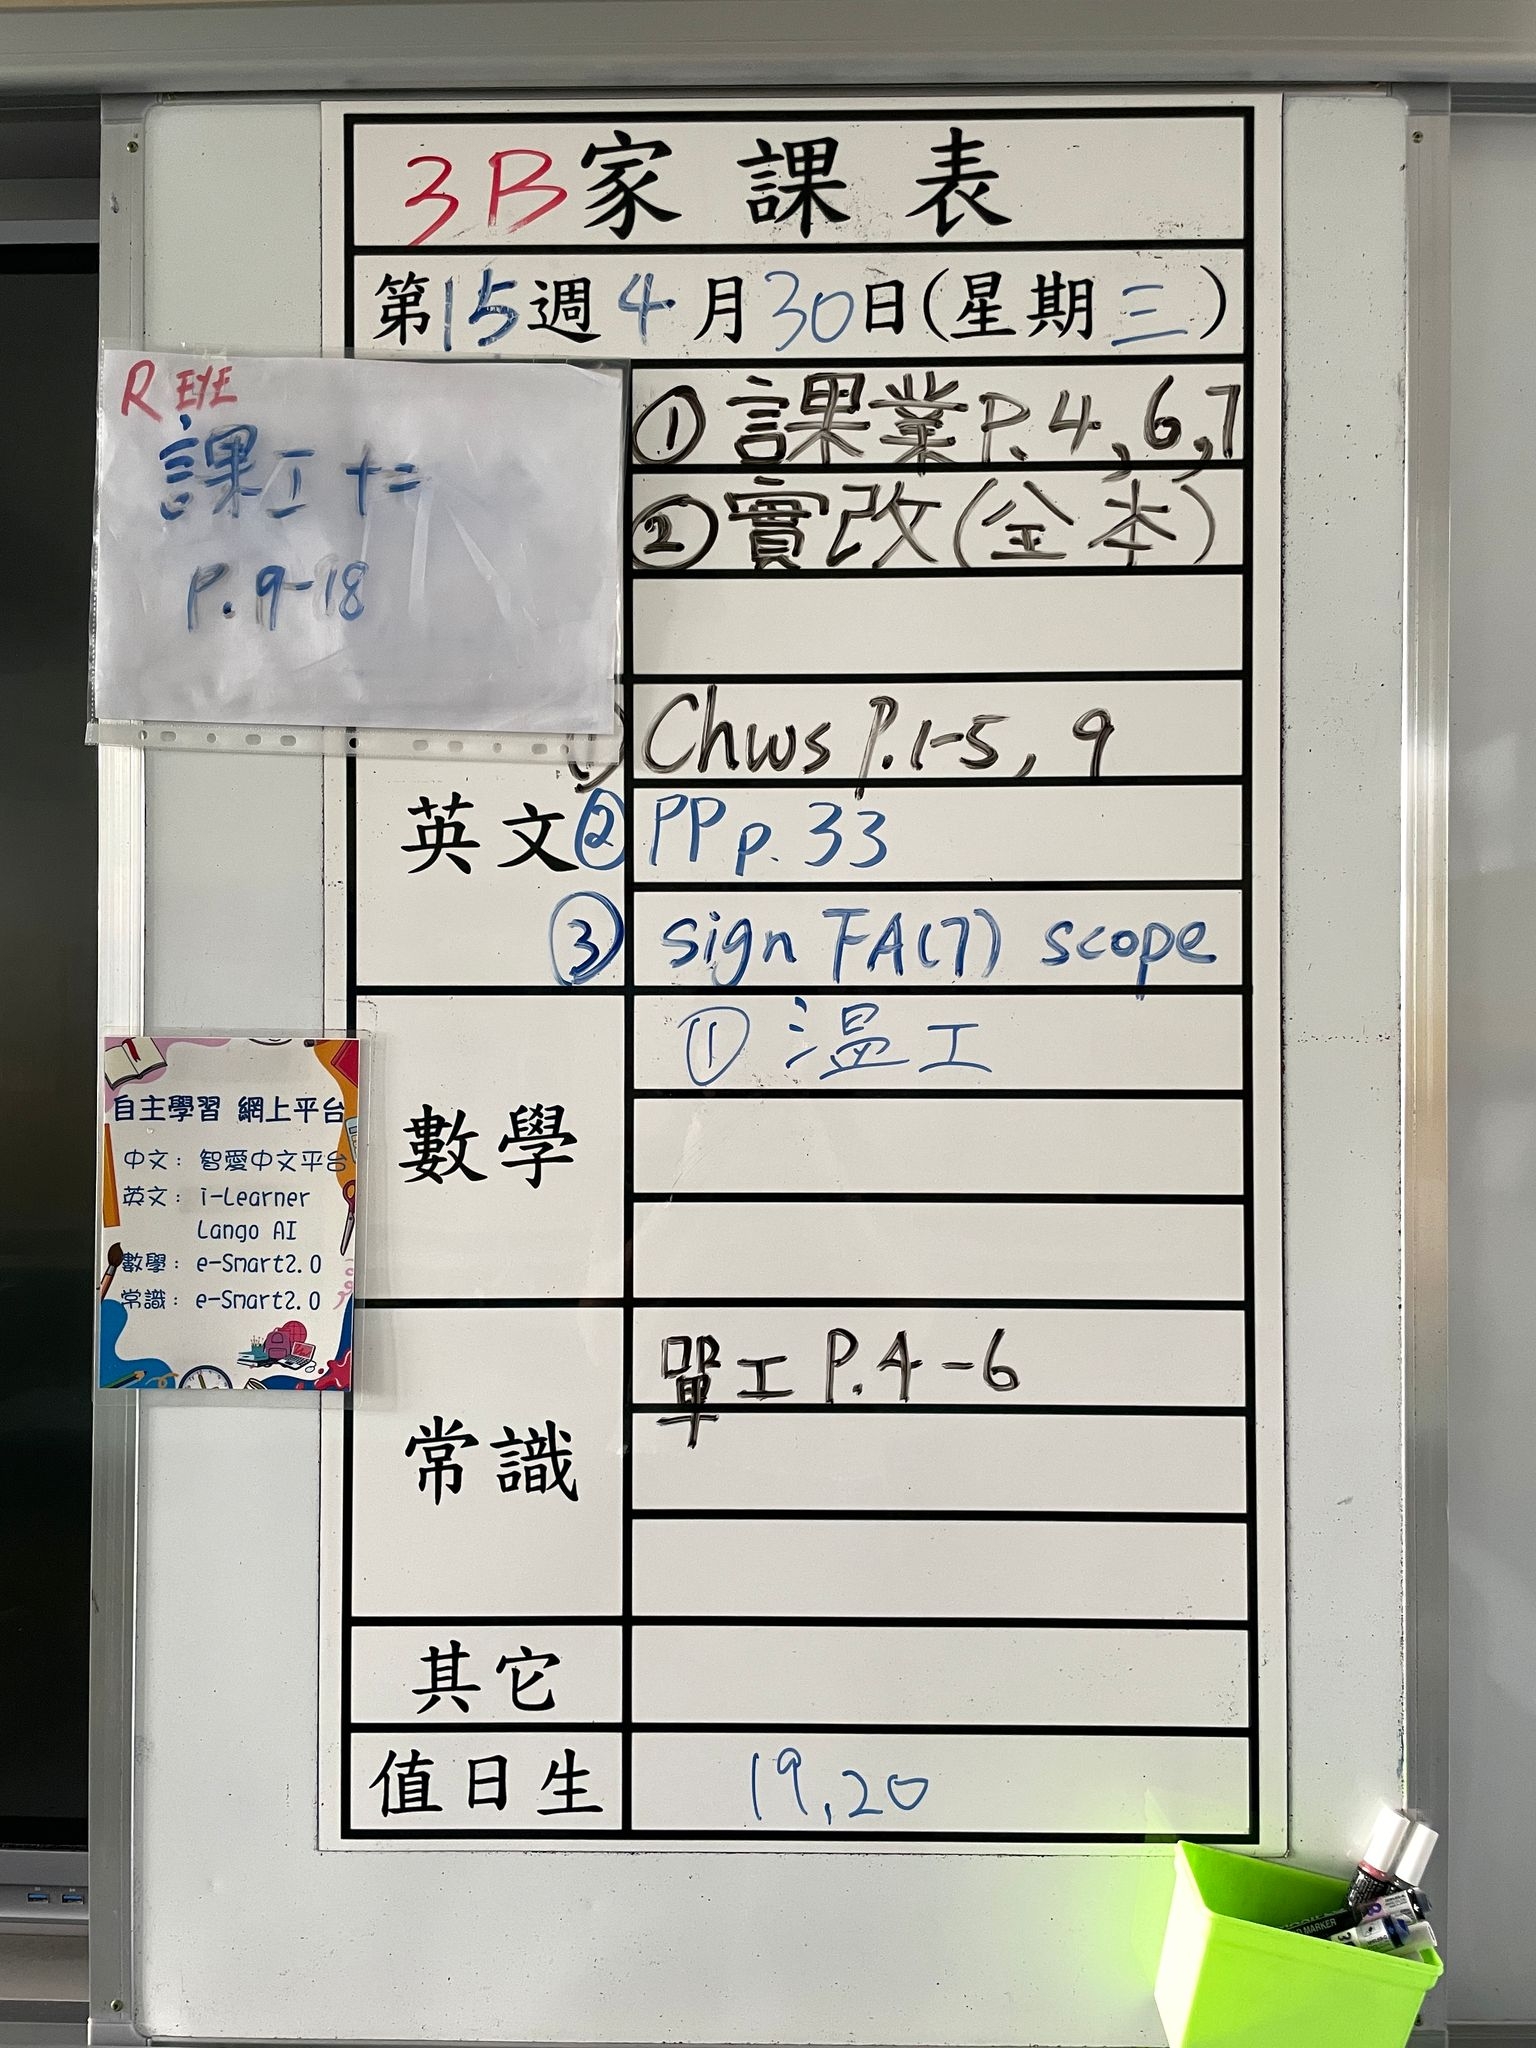 3B家課表
第15週4月30日(星期三)
R EYE
課工十二
P.9-18
①課業P.4,6,7
②實改(全本)
英文
① Chws P.1-5, 9
② PP p.33
③ sign FA(7) scope
數學
①溫工
常識
單工P.4-6
其它
值日生
19,20
自主學習 網上平台
中文：智愛中文平台
英文：i-Learner
Lango AI
數學：e-Smart2.0
常識：e-Smart2.0
MARKER